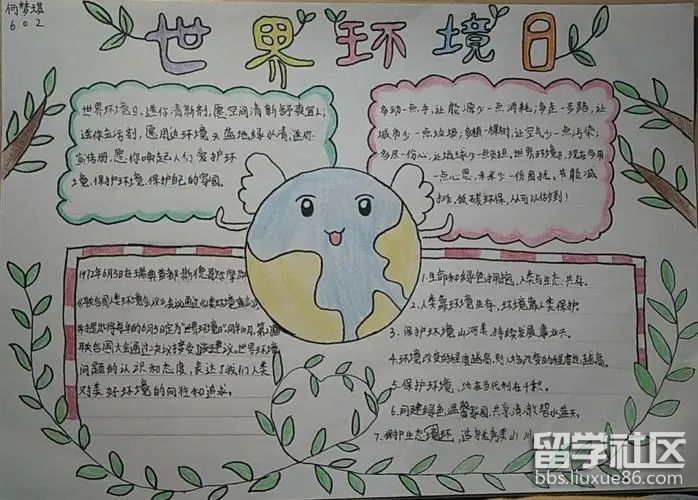 何梦琪
602
世界环境日
世界环境日,送你清新剂,愿空间清新舒爽宜人;
送你立污剂,愿周边环境天蓝地绿水清;送你
宣传册,愿你唤起人们爱护环
境,保护环境,保护自己的家园。
多动一点手,让能源少一点消耗;多走一步路,让
城市少一点垃圾;多植一棵树,让空气少一点污染;
多尽一份心,让地球少一点负担,世界环境日,现在多用
一点心思,未来少一份困扰。节能减
排,低碳环保,从可以做到!
1972年6月5日在瑞典首都斯德哥尔摩
《联合国人类环境会议》会议通过《人类环境宣言》
并提出将每年的6月5日定为"世界环境日"。同年10月,第27届
联合国大会通过决议接受该建议。世界环境
问题的认识和态度,表达了我们人类
对美好环境的向往和追求。
1.生命和绿色拥抱,人类与生态共存。
2.人类靠环境生存,环境靠人类保护。
3.保护环境山河美,持续发展事业兴。
4.环境改变的程度越高,则人口改变的程度也越高。
5.保护环境,功在当代利在千秋。
6.同建绿色温馨家园,共享清澈碧水蓝天。
7.保护生态环环,造秀美山川
留学社区
bbs.liuxue86.com